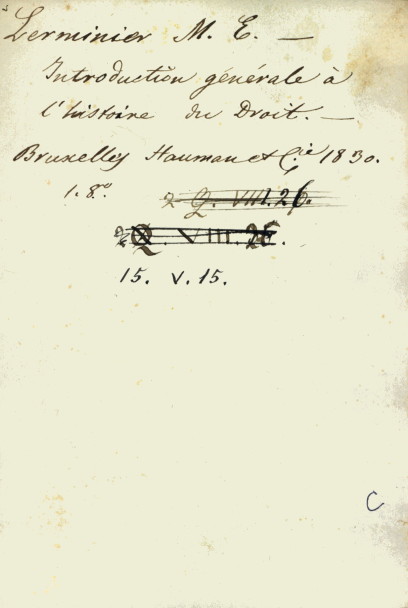 Lerminier M. E. —
Introduction générale à
l'histoire du Droit. —
Bruxelles Hauman et C.ie 1830.
1. 8.º
2 Q. VIII. 26.
2 Q. VIII. 26.
15. V. 15.
C